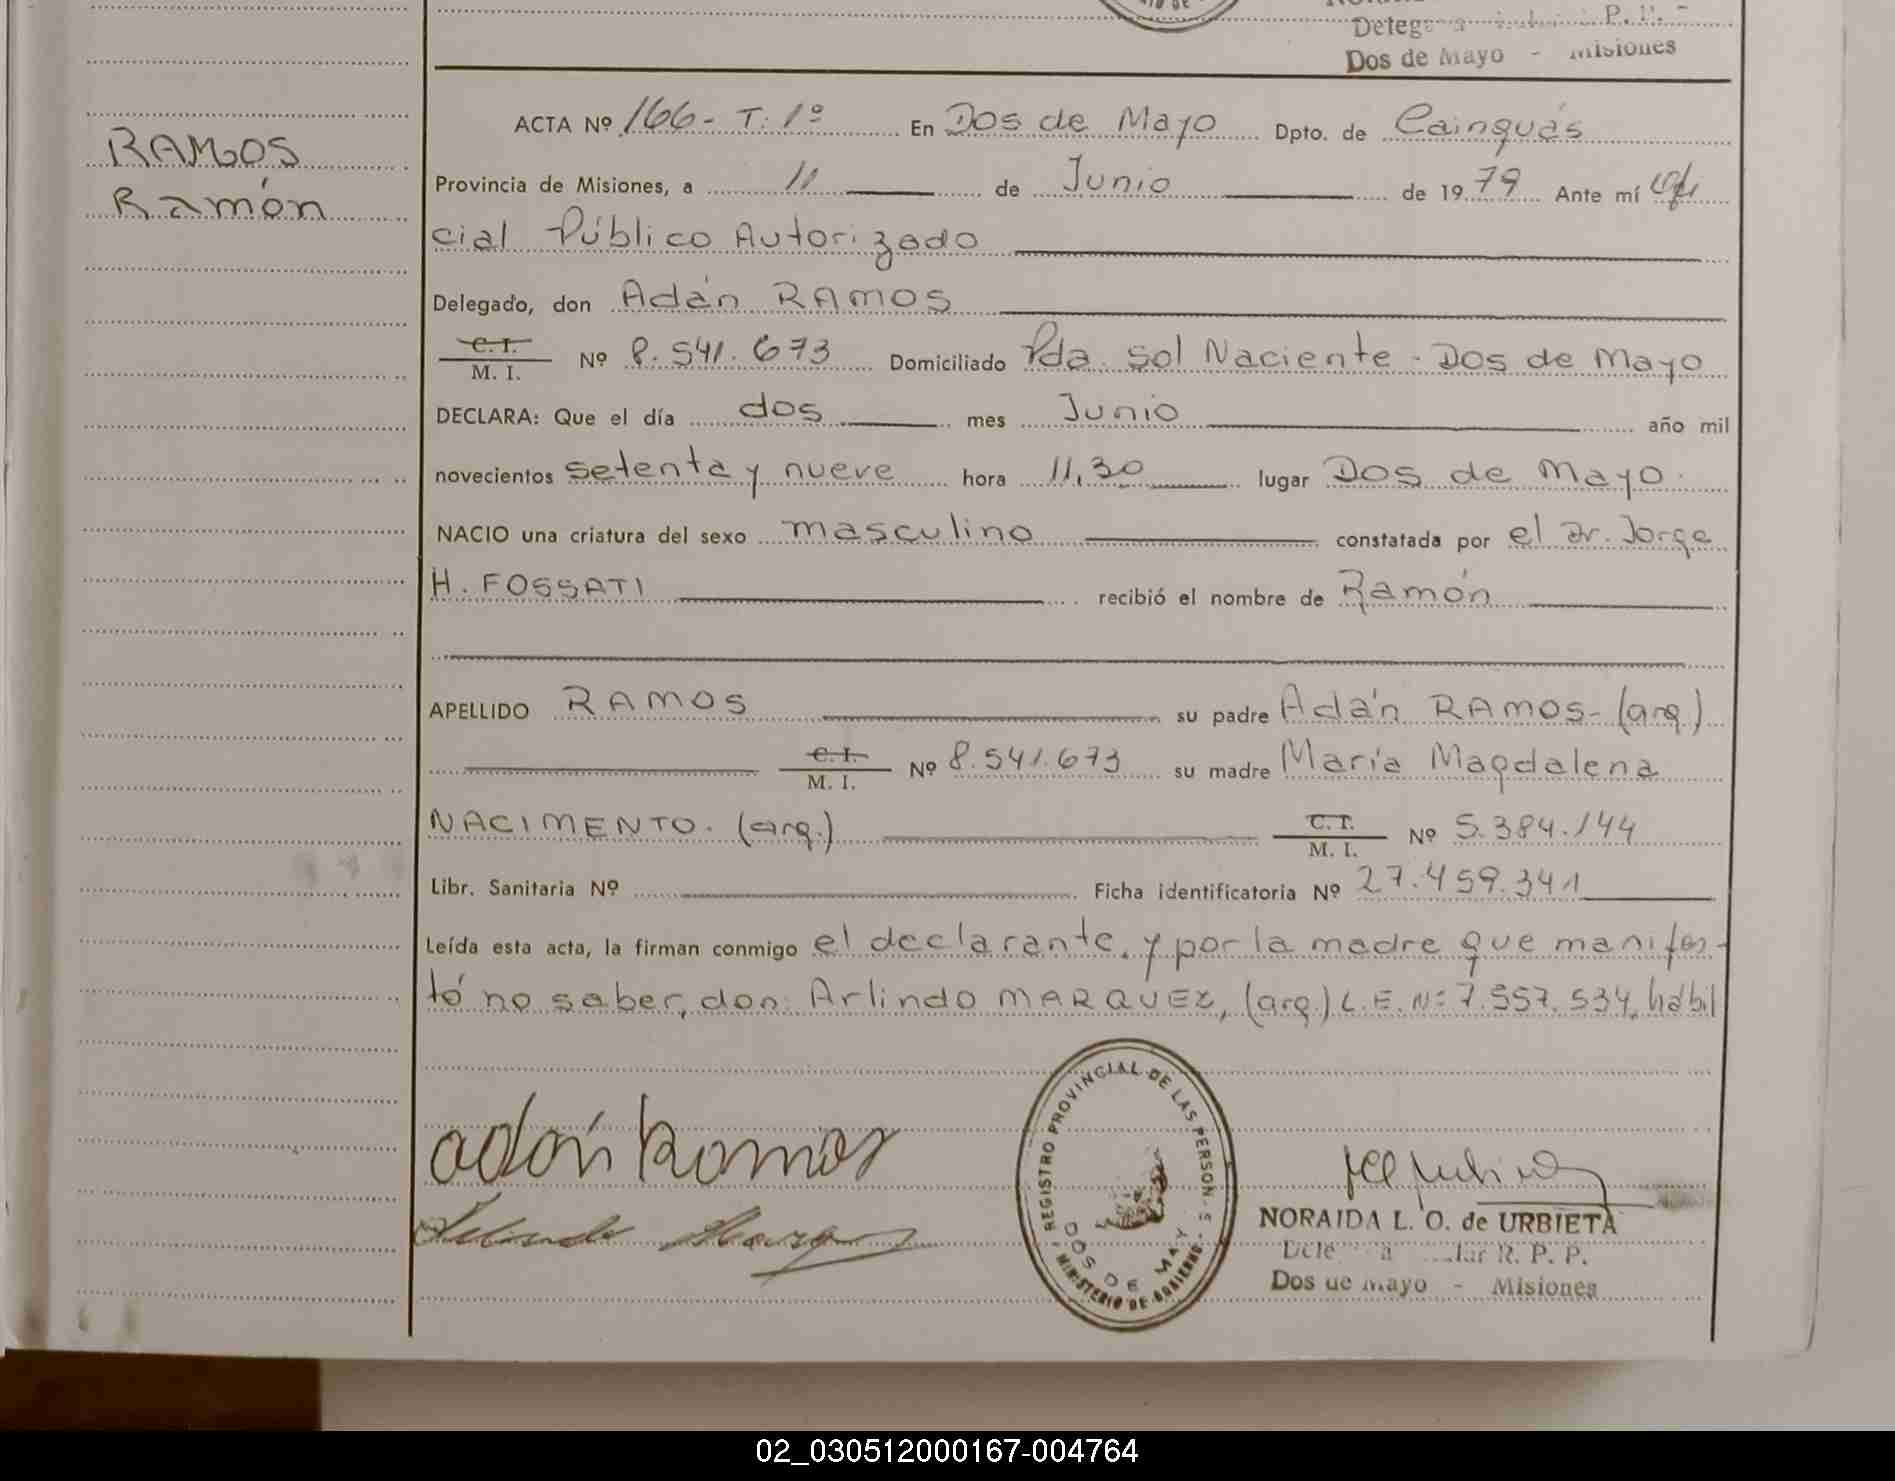 P. P.
Dos de Mayo - Misiones
RAMOS
Ramón
ACTA Nº 166- T: 1º En Dos de Mayo Dpto. de Cainguás
Provincia de Misiones, a 11 de Junio de 1979 Ante mí Ofi
cial Público Autorizado
Delegado, don Adán RAMOS
C. I. / M. I. Nº 8.541.673 Domiciliado Pda. Sol Naciente - Dos de Mayo
DECLARA: Que el día dos mes Junio año mil
novecientos setenta y nueve hora 11,30 lugar Dos de Mayo.
NACIO una criatura del sexo masculino constatada por el Dr. Jorge
H. FOSSATI recibió el nombre de Ramón
APELLIDO RAMOS su padre Adán RAMOS- (arg.)
C. I. / M. I. Nº 8.541.673 su madre María Magdalena
NACIMENTO. (arg.) C. I. / M. I. Nº 5.384.144
Libr. Sanitaria Nº Ficha identificatoria Nº 27.459.341
Leída esta acta, la firman conmigo el declarante, y por la madre que manifes-
tó no saber, don: Arlindo MARQUEZ, (arg.) L.E. Nº 7.557.534, hábil
adán Ramos
REGISTRO PROVINCIAL DE LAS PERSONAS
DOS DE MAYO
MINISTERIO DE GOBIERNO
NORAIDA L. O. de URBIETA
R. P. P.
Dos de Mayo - Misiones
02_030512000167-004764